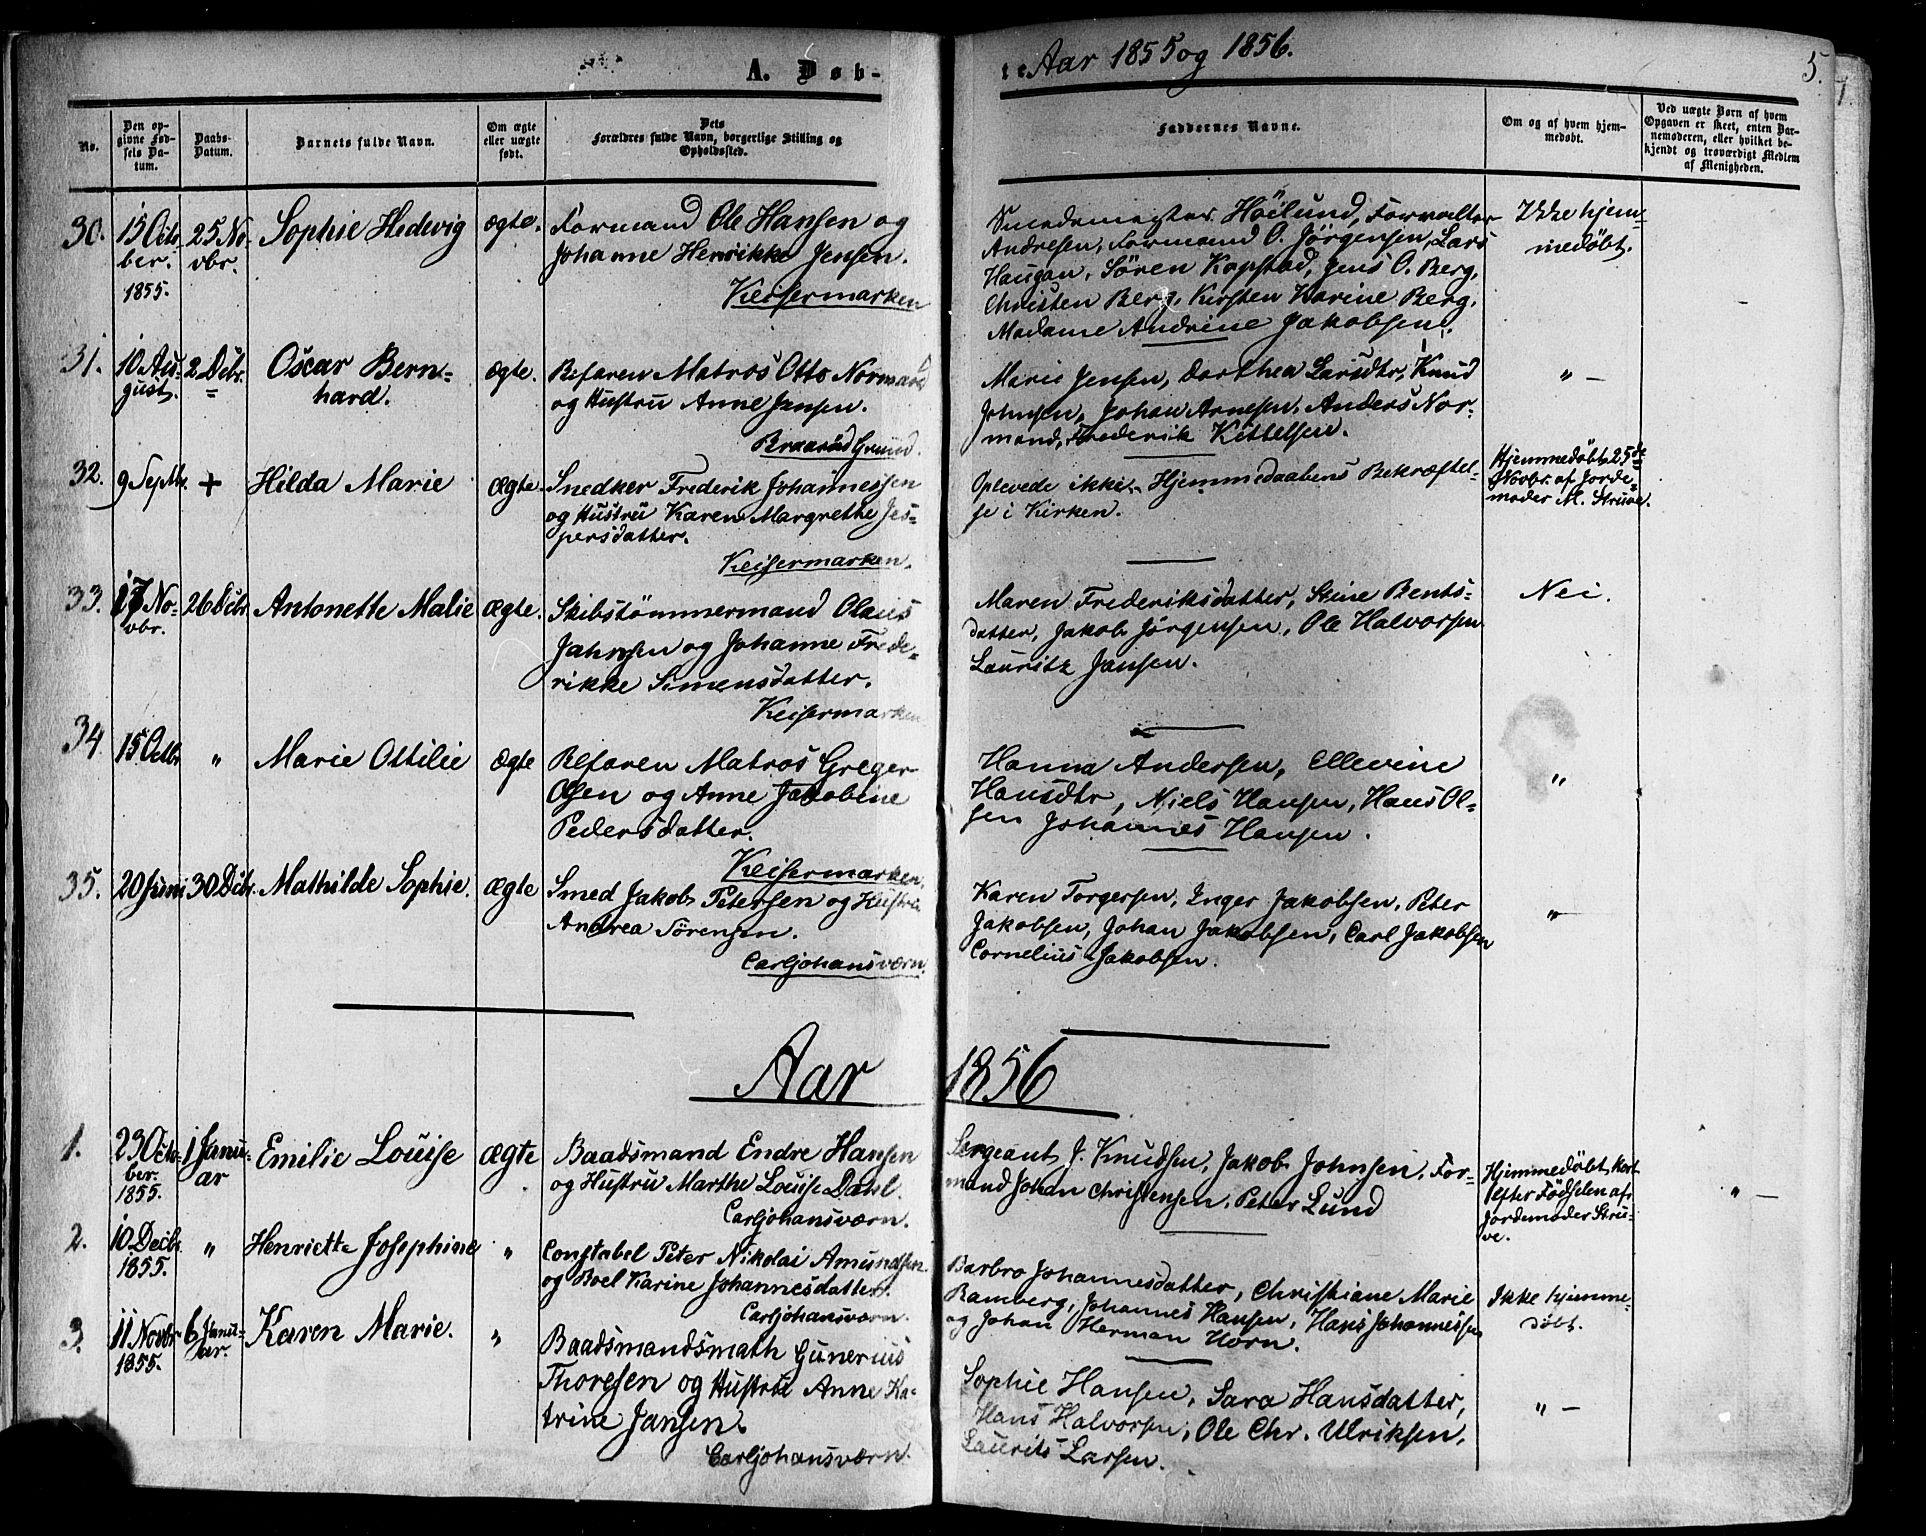 A. Døb-
te Aar 1855 og 1856.
5.
No.
Den op-
givne Fød-
sels Da-
tum.
Daabs-
Datum.
Barnets fulde Navn.
Om ægte
eller uægte
født.
Dets
Forældres fulde Navn, borgerlige Stilling og
Opholdssted.
Faddernes Navne.
Om og af hvem hjem-
medøbt.
Ved uægte Børn af hvem
Opgaven er skeet, enten Bar-
nemoderen, eller hvilket be-
kjendt og troværdigt Medlem
af Menigheden.
30.
15 Octo-
ber.
1855.
25 No-
vbr.
Sophie Hedevig
ægte.
Formand Ole Hansen og
Johanne Henrikke Jensen.
Keisermarken
Smedemester Höilund, Forvalter
Andresen, Formand O. Jörgensen, Lars
Haugan, Sören Kopstad, Jens O. Berg,
Christen Berg, Kirsten Karine Berg,
Madame Andrine Jakobsen.
Ikke hjem-
medöbt.
31.
10 Au-
gust.
2 Debr.
Oscar Bern-
hard.
ægte.
Befaren Matros Otto Normand
og Hustru Anne Jensen.
Braaråd Grund.
Marie Jensen, Dorthea Larsdtr, Knud
Johnsen, Johan Arnesen, Anders Nor-
mand, Frederik Kittelsen.
" —
32.
9 Septbr.
+
Hilda Marie
ægte
Snedker Frederik Johannessen
og Hustru Karen Margrethe Jes-
persdatter.
Keisermarken.
Oplevede ikke Hjemmedaabens Bekræftel-
se i Kirken.
Hjemmedöbt 25de
Novbr. af Jorde-
moder M. Struve.
33.
17 No-
vbr.
26 Debr.
Antonette Malie
ægte.
Skibstömmermand Olaus
Jahnsen og Johanne Frede-
rikke Simensdatter.
Keisermarken
Maren Frederiksdatter, Stine Bents-
datter, Jakob Jörgensen, Ole Halvorsen
Lauritz Jansen.
Nei.
34
15 Octbr
"
Marie Ottilie
ægte
Befaren Matros Greger
Olsen og Anne Jakobine
Pedersdatter.
Keisermarken.
Hanna Andersen, Ellevine
Hansdtr, Niels Hansen, Hans Ol-
sen Johannes Hansen.
"
35.
20 Juni
30 Debr.
Mathilde Sophie.
ægte
Smed Jakob Petersen og Hustru
Andrea Sörensen.
Carljohansværn.
Karen Torgersen, Inger Jakobsen, Peter
Jakobsen, Johan Jakobsen, Carl Jakobsen
Cornelius Jakobsen.
"
Aar 1856
1.
23 Octo-
ber.
1855.
1 Janu-
ar
Emilie Louise
ægte
Baadsmand Endre Hansen
og Hustru Marthe Louise Dahl.
Carljohansværn.
Sergeant J. Knudsen, Jakob Johnsen, For-
mand Johan Christensen, Peter Lund
Hjemmedöbt kort
efter Födselen af
Jordemoder Stru-
ve.
" —
2.
10 Decbr.
1855.
"
Henriette Josephine
"
Constabel Peter Nikolai Amundsen
og Boel Karine Johannesdatter.
Carljohansværn.
Barbro Johannesdatter, Christiane Marie
Ramberg, Johannes Hansen, Hans Johannessen
og Johan Herman Horn.
Ikke hjemme-
döbt.
3.
11 Novbr
1855.
6 Janu-
ar.
Karen Marie.
"
Baadsmandsmath Gunerius
Thoresen og Hustru Anne Ka-
trine Jansen.
Carljohansværn.
Sophie Hansen, Sara Hansdatter,
Hans Halvorsen, Ole Chr. Ulriksen,
Laurits Larsen.
" —